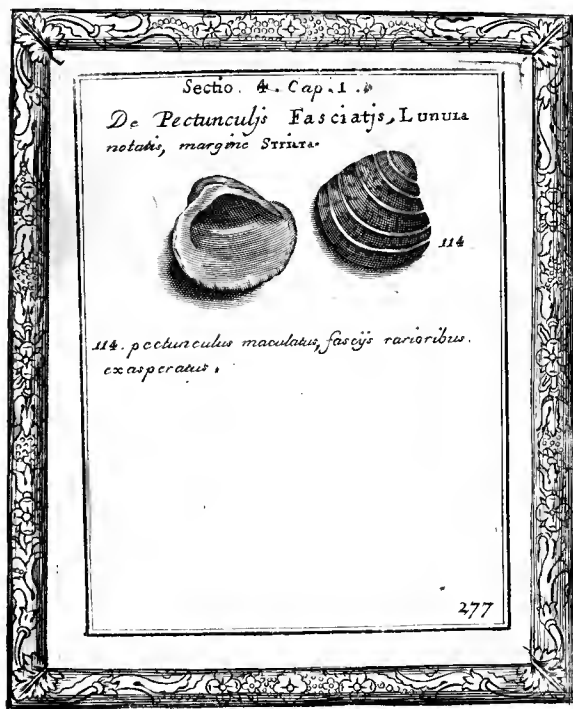 Sectio. 4. Cap. 1.
De Pectunculjs Fasciatjs, LUNULA
notatis, margine STRIATA.
114
114. pectunculus maculatus, fascijs rarioribus.
exasperatus.
277